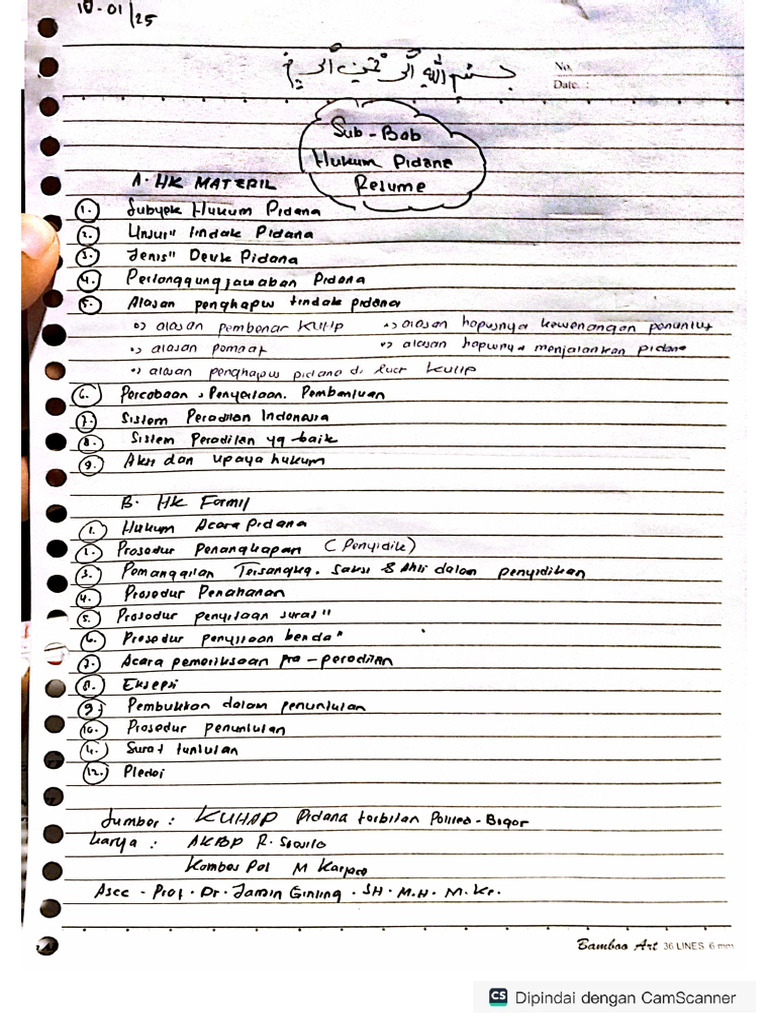 10-01/25
بسم الله الرحمن الرحيم
No.
Date. :
Sub-Bab
Hukum Pidana
Resume
A. HK MATERIL
1. Subyek Hukum Pidana
2. Unsur" tindak Pidana
3. Jenis" Deuk Pidana
4. Pertanggungjawaban Pidana
5. Alasan penghapus tindak pidana
•) alasan pembenar KUHP •) alasan hapusnya kewenangan penuntut
•) alasan pemaaf •) alasan hapusnya menjalankan pidana
•) alasan penghapus pidana di luar KUHP
6. Percobaan, Penyertaan. Pembantuan
7. Sistem Peradilan Indonesia
8. Sistem Peradilan yg baik
9. Akni dan upaya hukum
B. HK Formil
1. Hukum Acara Pidana
2. Prosedur Penangkapan (Penyidik)
3. Pemanggilan Tersangka. saksi & Ahli dalam penyidikan
4. Prosedur Penahanan
5. Prosedur penyitaan surat"
6. Prosedur penyitaan benda"
7. Acara pemeriksaan pra-peradilan
8. Eksepsi
9. Pembuktian dalam penuntutan
10. Prosedur penuntutan
4. Surat tuntutan
12. Pledoi
Sumber : KUHAP Pidana terbitan Politea-Bogor
karya : AKBP R. Soesilo
Kombes Pol M Karjadi
Asec - Prof. Dr. Jamin Ginting. SH. M.H. M.Kn.
Bamboo Art 36 LINES 6 mm
CS Dipindai dengan CamScanner